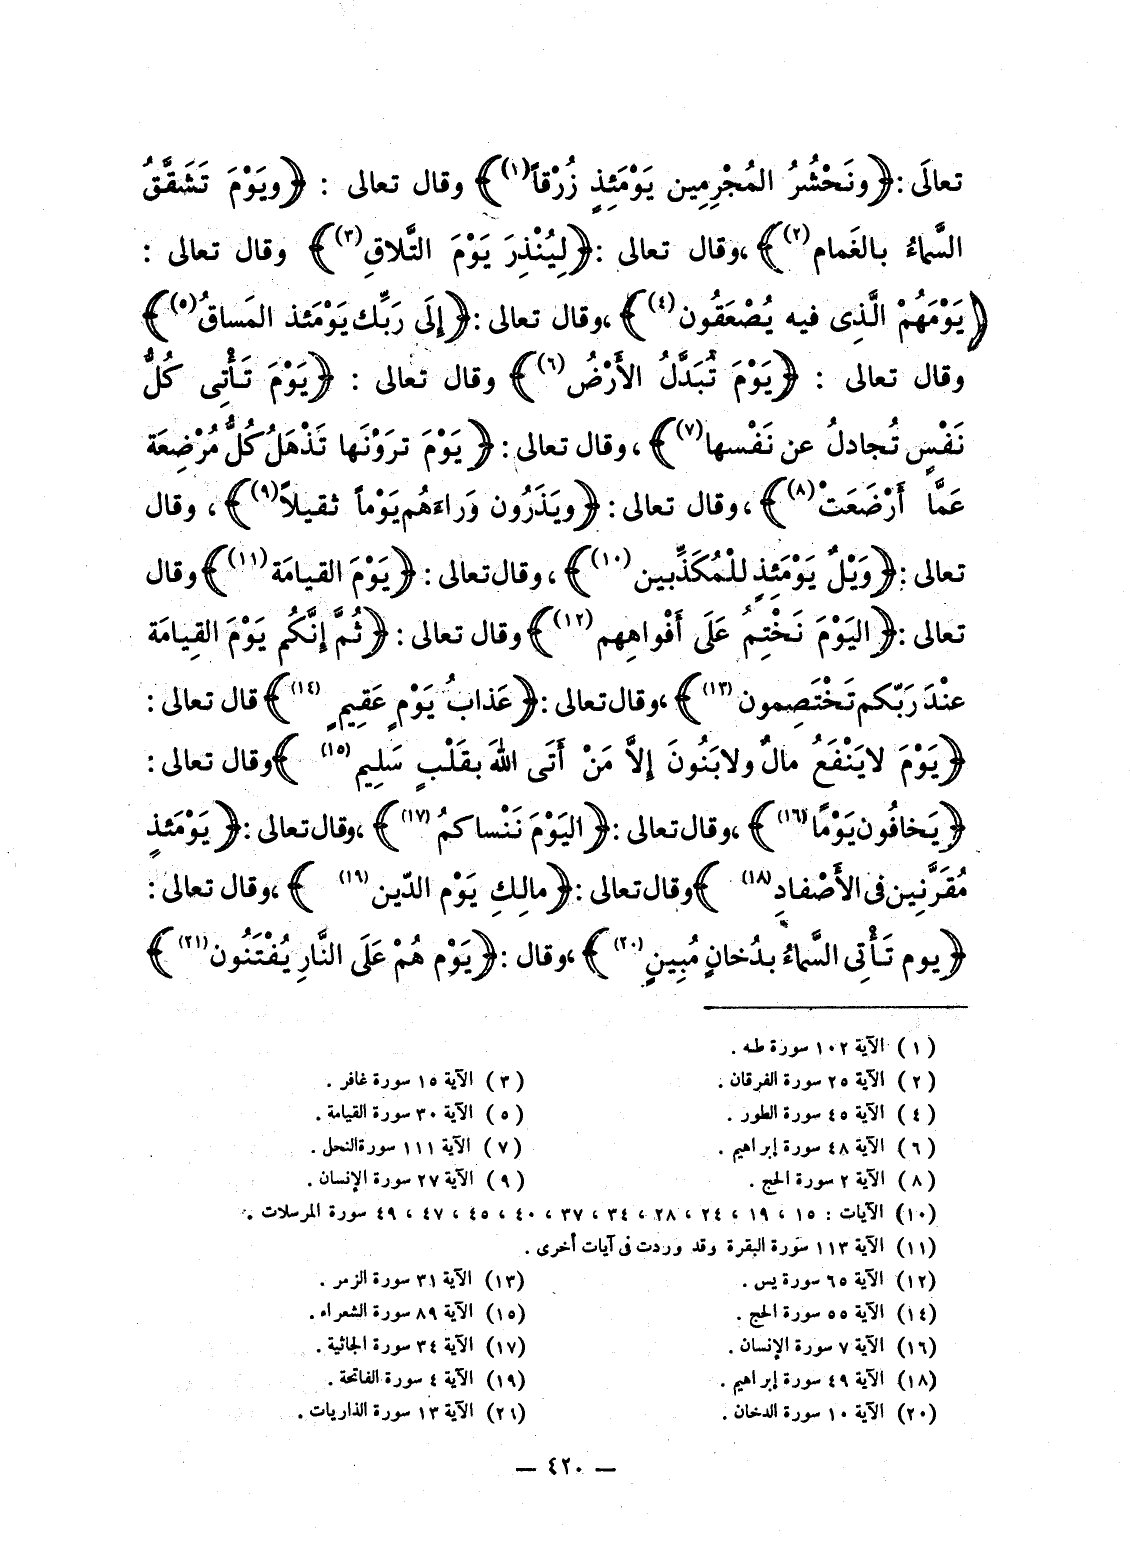 تعالَى :﴿ونَحْشُرُ المُجْرِمِين يَوْمَئِذٍ زُرْقاً(١)﴾ وقال تعالى : ﴿ويَوْمَ تَشَقَّقُ
السَّماءُ بالغَمام (٢)﴾،وقال تعالى :﴿لِيُنْذِرَ يَوْمَ التَّلاقِ(٣)﴾ وقال تعالى :
﴿يَوْمَهُمْ الَّذِى فيه يُصْعَقُون(٤)﴾،وقال تعالى :﴿إِلَى رَبِّك يَوْمَئذ المَساقُ(٥)﴾
وقال تعالى : ﴿يَوْمَ تُبَدَّلُ الأَرْضُ(٦)﴾ وقال تعالى : ﴿يَوْمَ تَأْتِى كُلُّ
نَفْسٍ تُجادلُ عن نَفْسها(٧)﴾ ،وقال تعالى :﴿يَوْمَ تَرَوْنَها تَذْهَلُ كُلُّ مُرْضِعَة
عَمَّا أَرْضَعَتْ(٨)﴾ ،وقال تعالى :﴿ويَذَرُون وَراءهُم يَوْماً ثقيلاً(٩)﴾ ، وقال
تعالى :﴿وَيْلٌ يَوْمَئِذٍ للْمُكَذِّبين(١٠)﴾ ، وقال تعالى :﴿يَوْمَ القيامَة (١١)﴾ وقال
تعالى :﴿اليَوْمَ نَخْتِمُ عَلَى أَفْواهِهم(١٢)﴾ وقال تعالى :﴿ثُمَّ إِنَّكُم يَوْمَ القِيامَة
عنْدَ رَبّكم تَخْتَصِمون(١٣)﴾،وقال تعالى :﴿عَذابُ يَوْمٍ عَقِيمٍ (١٤)﴾ قال تعالى :
﴿يَوْمَ لايَنْفَعُ مالٌ ولابَنُونَ إلاَّ مَنْ أَتَى اللهَ بقَلْبٍ سَلِيم(١٥) ﴾وقال تعالى :
﴿يَخافُون يَوْمًا(١٦)﴾ ،وقال تعالى :﴿اليَوْمَ نَنْساكمُ(١٧)﴾ ،وقال تعالى :﴿يَوْمَئذٍ
مُقَرَّنِين فى الأَصْفادِ(١٨) ﴾وقال تعالى :﴿مالِكِ يَوْم الدّين(١٩) ﴾ ،وقال تعالى :
﴿يوم تَأْتِى السَّماءُ بدُخانٍ مُبِينٍ(٢٠)﴾ ،وقال :﴿يَوْم هُمْ عَلَى النَّارِ يُفْتَنُون(٢١)﴾
(١) الآية ١٠٢ سورة طه .
(٢) الآية ٢٥ سورة الفرقان . (٣) الآية ١٥ سورة غافر .
(٤) الآية ٤٥ سورة الطور . (٥) الآية ٣٠ سورة القيامة .
(٦) الآية ٤٨ سورة إبراهيم . (٧) الآية ١١١ سورة النحل .
(٨) الآية ٢ سورة الحج . (٩) الآية ٢٧ سورة الإنسان .
(١٠) الآيات : ١٥ ، ١٩ ، ٢٤ ، ٢٨ ، ٣٤ ، ٣٧ ، ٤٠ ، ٤٥ ، ٤٧ ، ٤٩ سورة المرسلات .
(١١) الآية ١١٣ سورة البقرة وقد وردت فى آيات أخرى .
(١٢) الآية ٦٥ سورة يس . (١٣) الآية ٣١ سورة الزمر .
(١٤) الآية ٥٥ سورة الحج . (١٥) الآية ٨٩ سورة الشعراء .
(١٦) الآية ٧ سورة الإنسان . (١٧) الآية ٣٤ سورة الجاثية .
(١٨) الآية ٤٩ سورة إبراهيم . (١٩) الآية ٤ سورة الفاتحة .
(٢٠) الآية ١٠ سورة الدخان . (٢١) الآية ١٣ سورة الذاريات .
— ٤٢٠ —